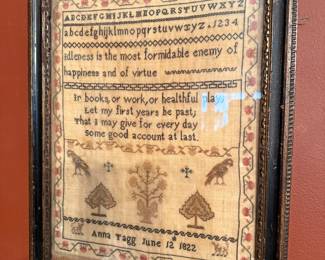 ABCDEFGHIJKLMNOPQRSTUVWXYZ
abcdefghijklmnopqrstuvwxyz.1234
idleness is the most formidable enemy of
happiness and of virtue
In books, or work, or healthful play,
Let my first years be past;
That I may give for every day
Some good account at last.
Anna Tagg June 12th 1822